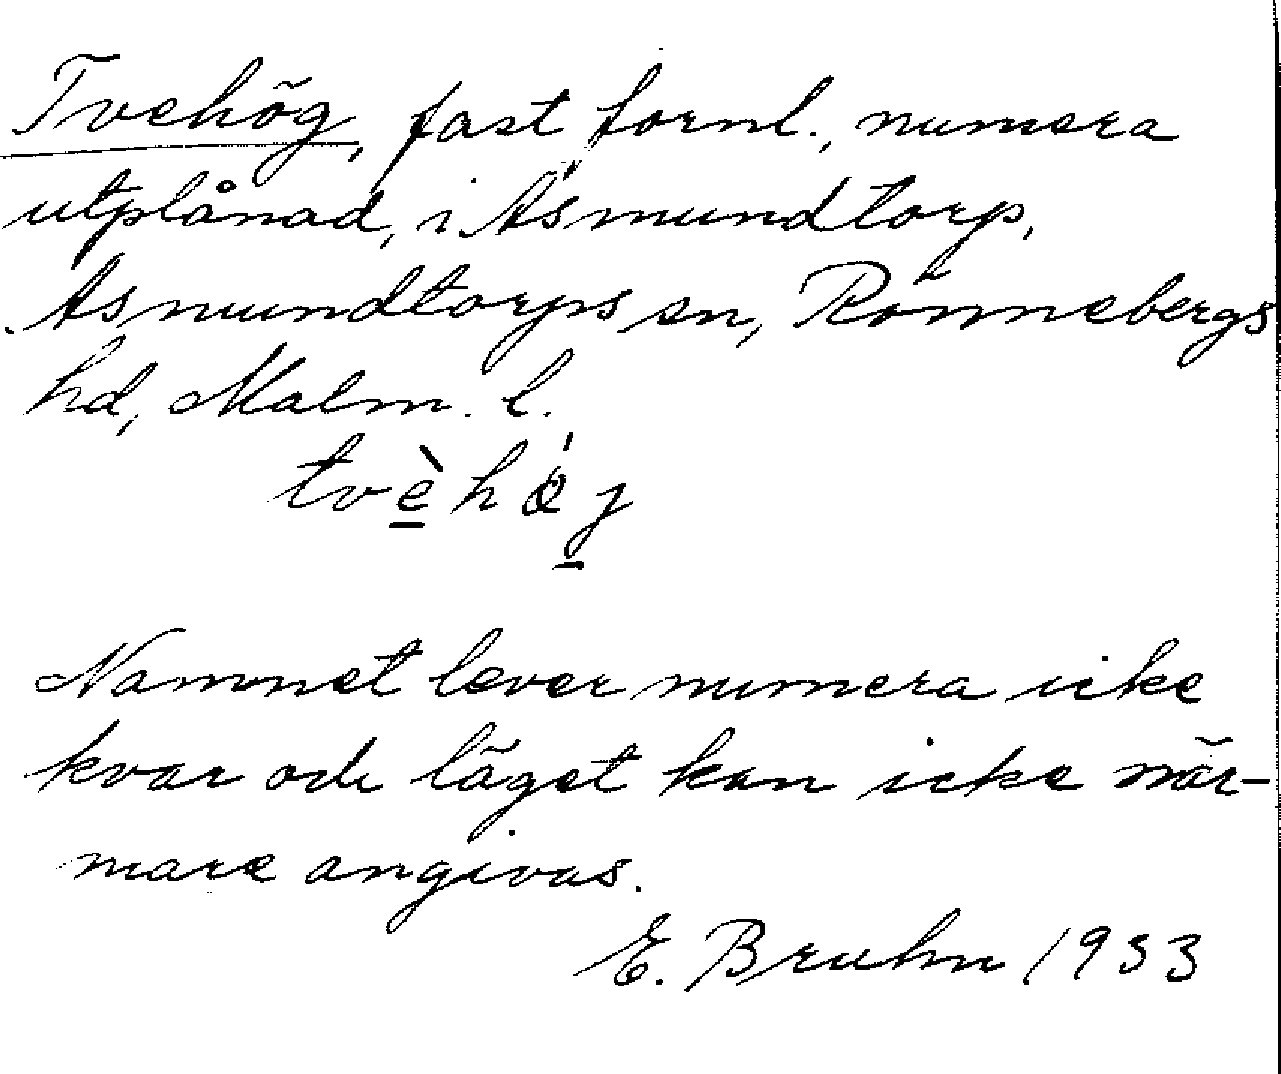 Tvehög, fast fornl., numera
utplånad, i Asmundtorp,
Asmundtorps sn, Rönnebergs
hd, Malm. l.
tvèhǿj
Namnet lever numera icke
kvar och läget kan icke när-
mare angivas.
E. Bruhn 1933